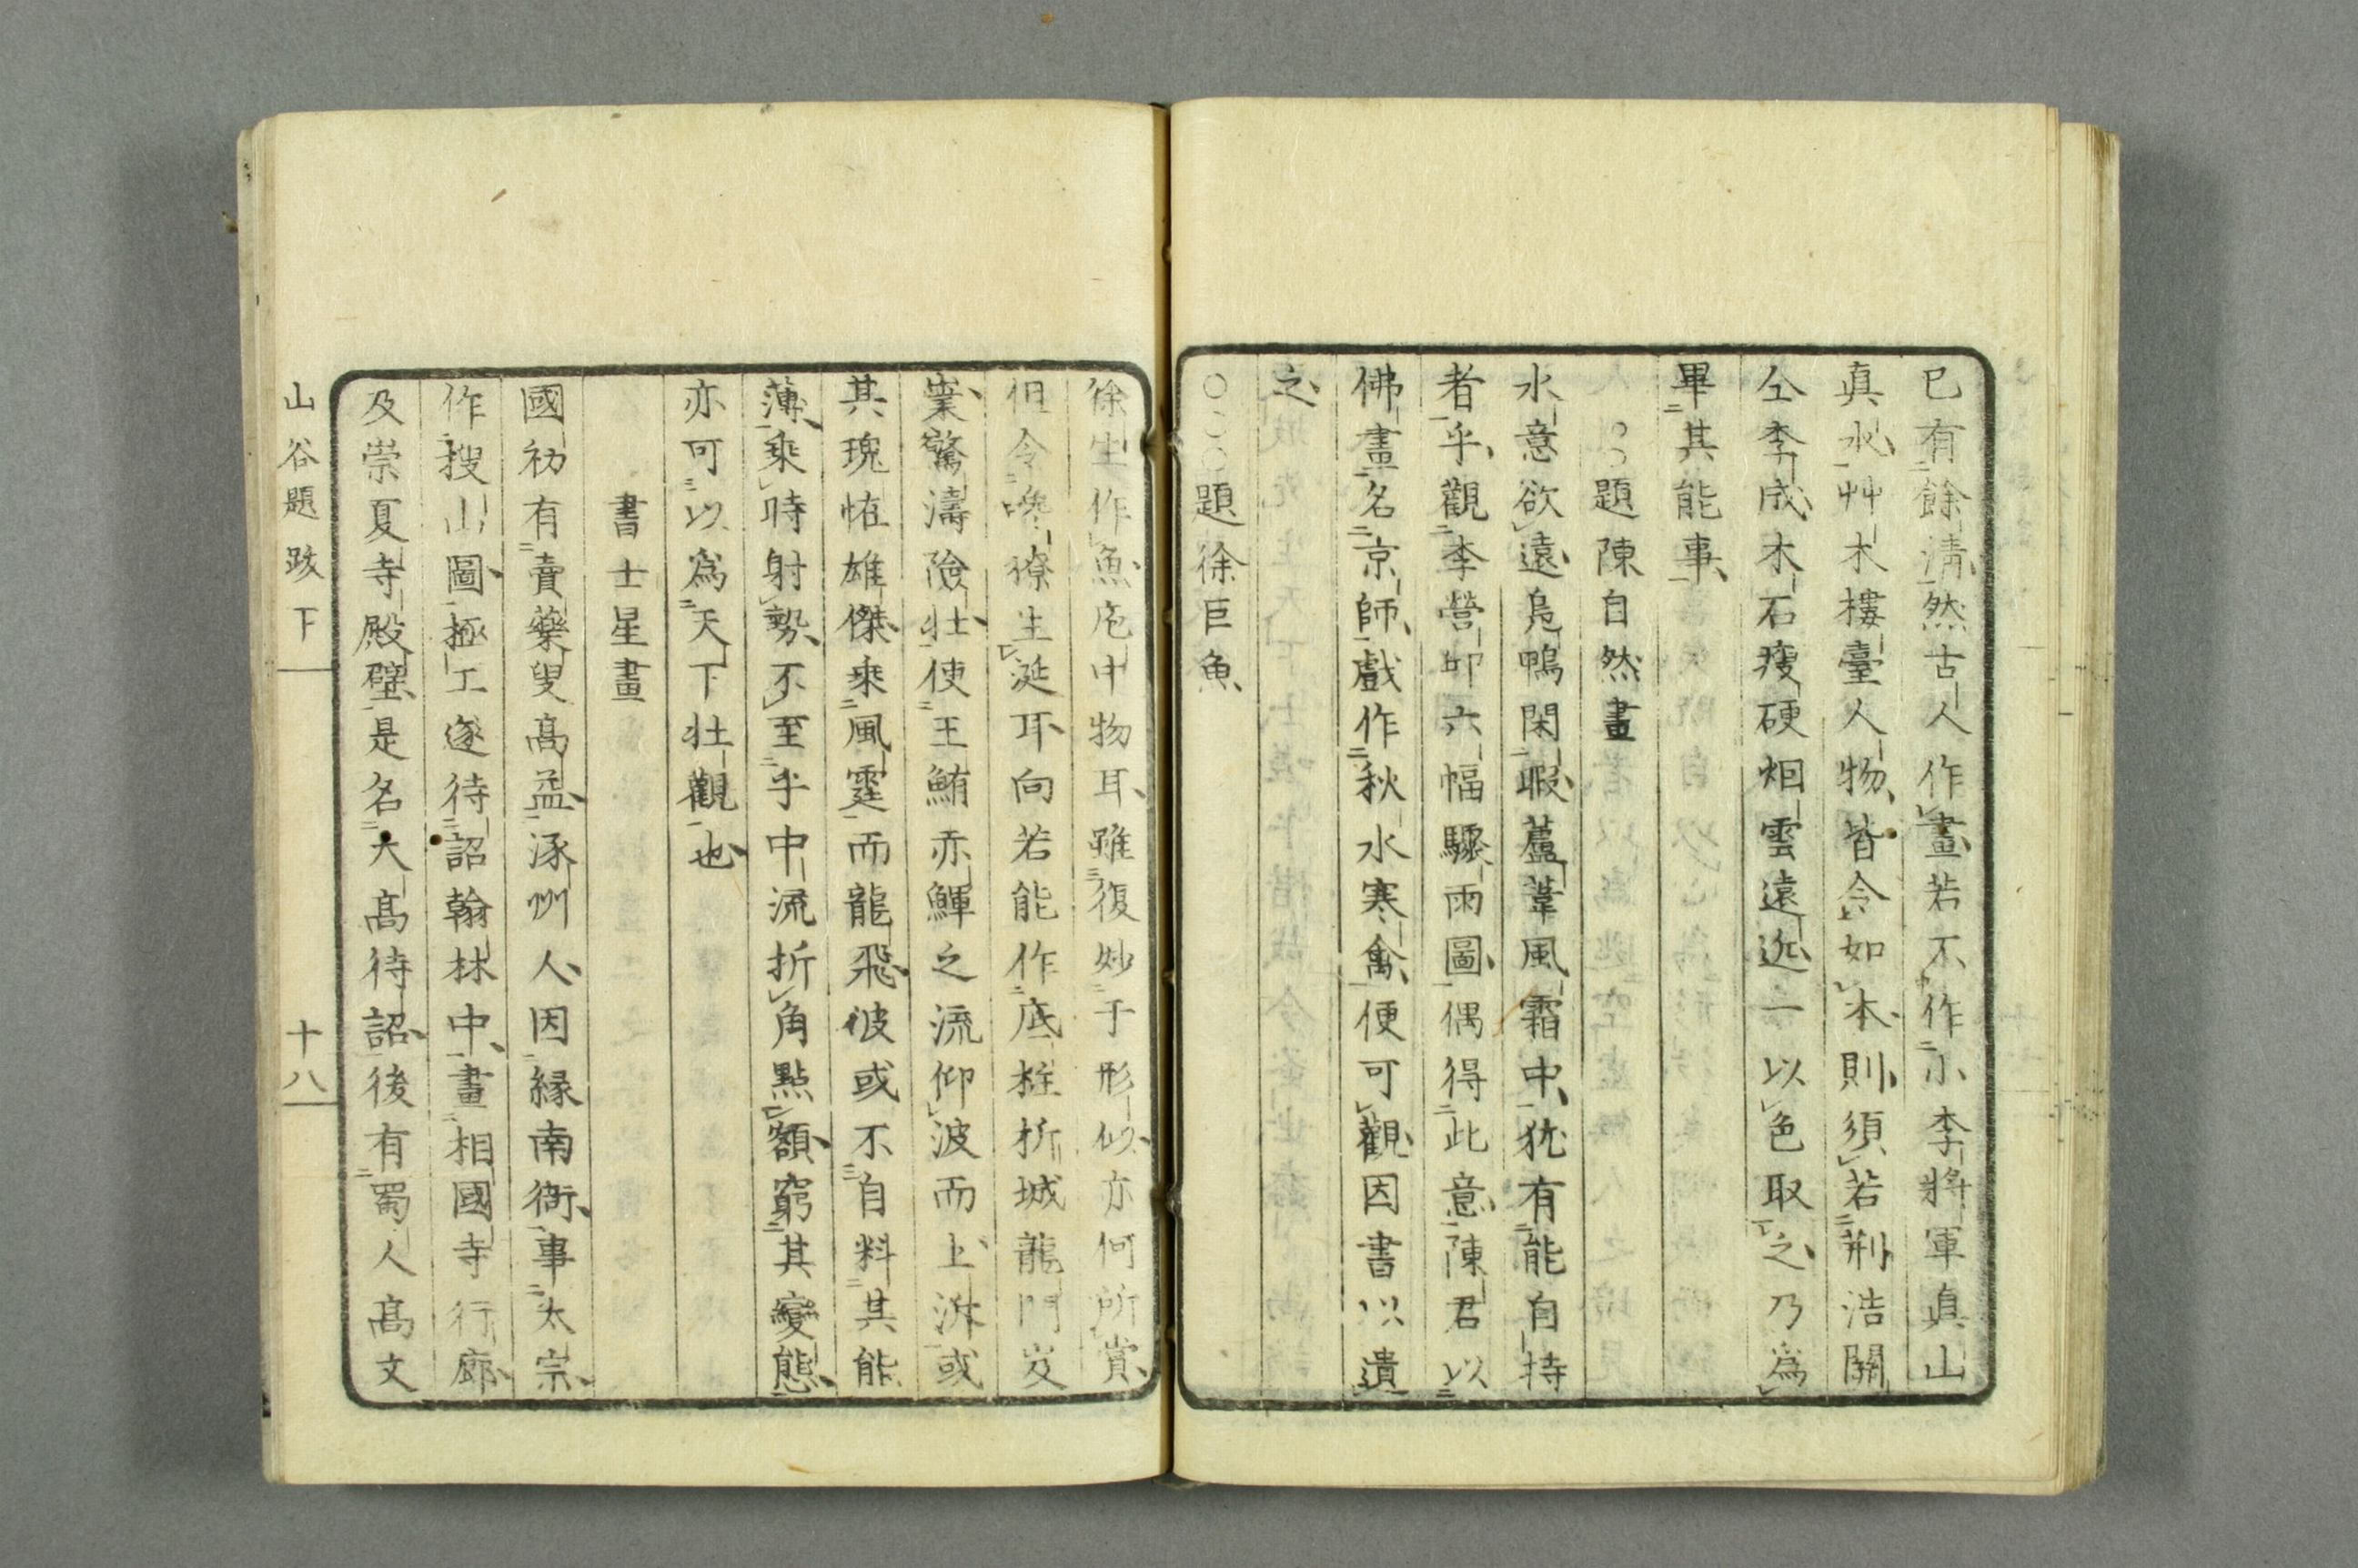 已有餘清然古人作畫若不作小李將軍真山
真水艸木樓臺人物皆令如本則須若荆浩關
仝李成木石瘦硬烟雲遠近一以色取之乃爲
畢其能事
○○題陳自然畫
水意欲遠鳧鴨閑暇蘆葦風霜中犹有能自持
者乎觀李營邱六幅驟雨圖偶得此意陳君以
佛畫名京師戲作秋水寒禽便可觀因書以遺
之
○○○題徐巨魚
徐生作魚庖中物耳雖復妙于形似亦何所賞
但令嚵獠生涎耳向若能作底柱折城龍門岌
嶪驚濤險壯使王鮪赤鱓之流仰波而上泝或
其瑰恠雄傑乘風霆而龍飛彼或不自料其能
薄乘時射勢不至乎中流折角點額窮其變態
亦可以爲天下壮觀也
書士星畫
國初有賣藥叟高益涿州人因緣南衙事太宗
作搜山圖極工遂待詔翰林中畫相國寺行廊
及崇夏寺殿壁是名大高待詔後有蜀人高文
山谷題跋下 十八